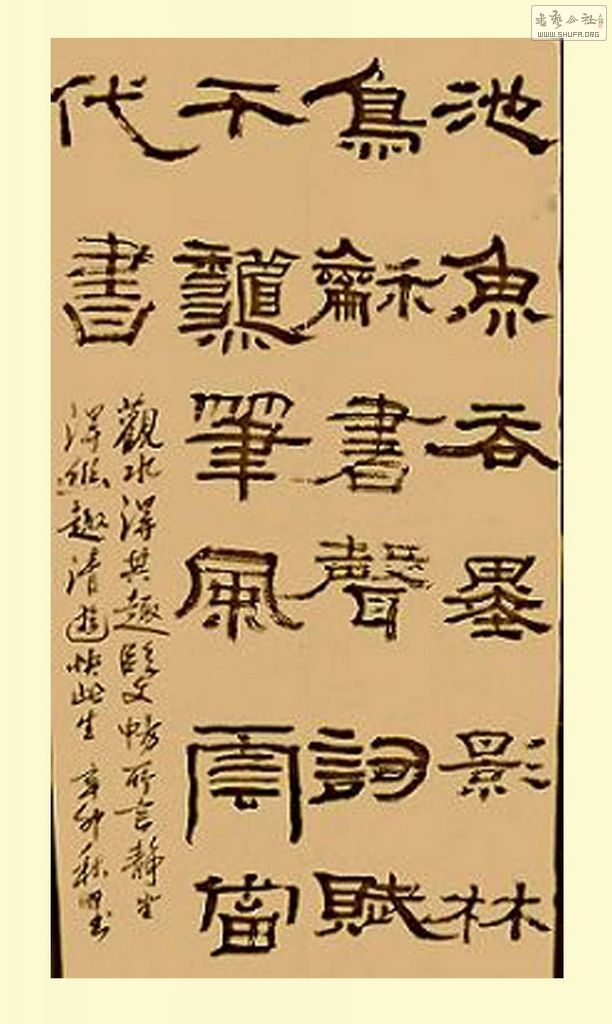 書藝公社
WWW.SHUFA.ORG
池魚吞墨影林
鳥龢書聲詞賦
千筆風雲當
代書
觀水得其趣臨文暢所言靜坐
得趣清遊快此生 辛卯秋書